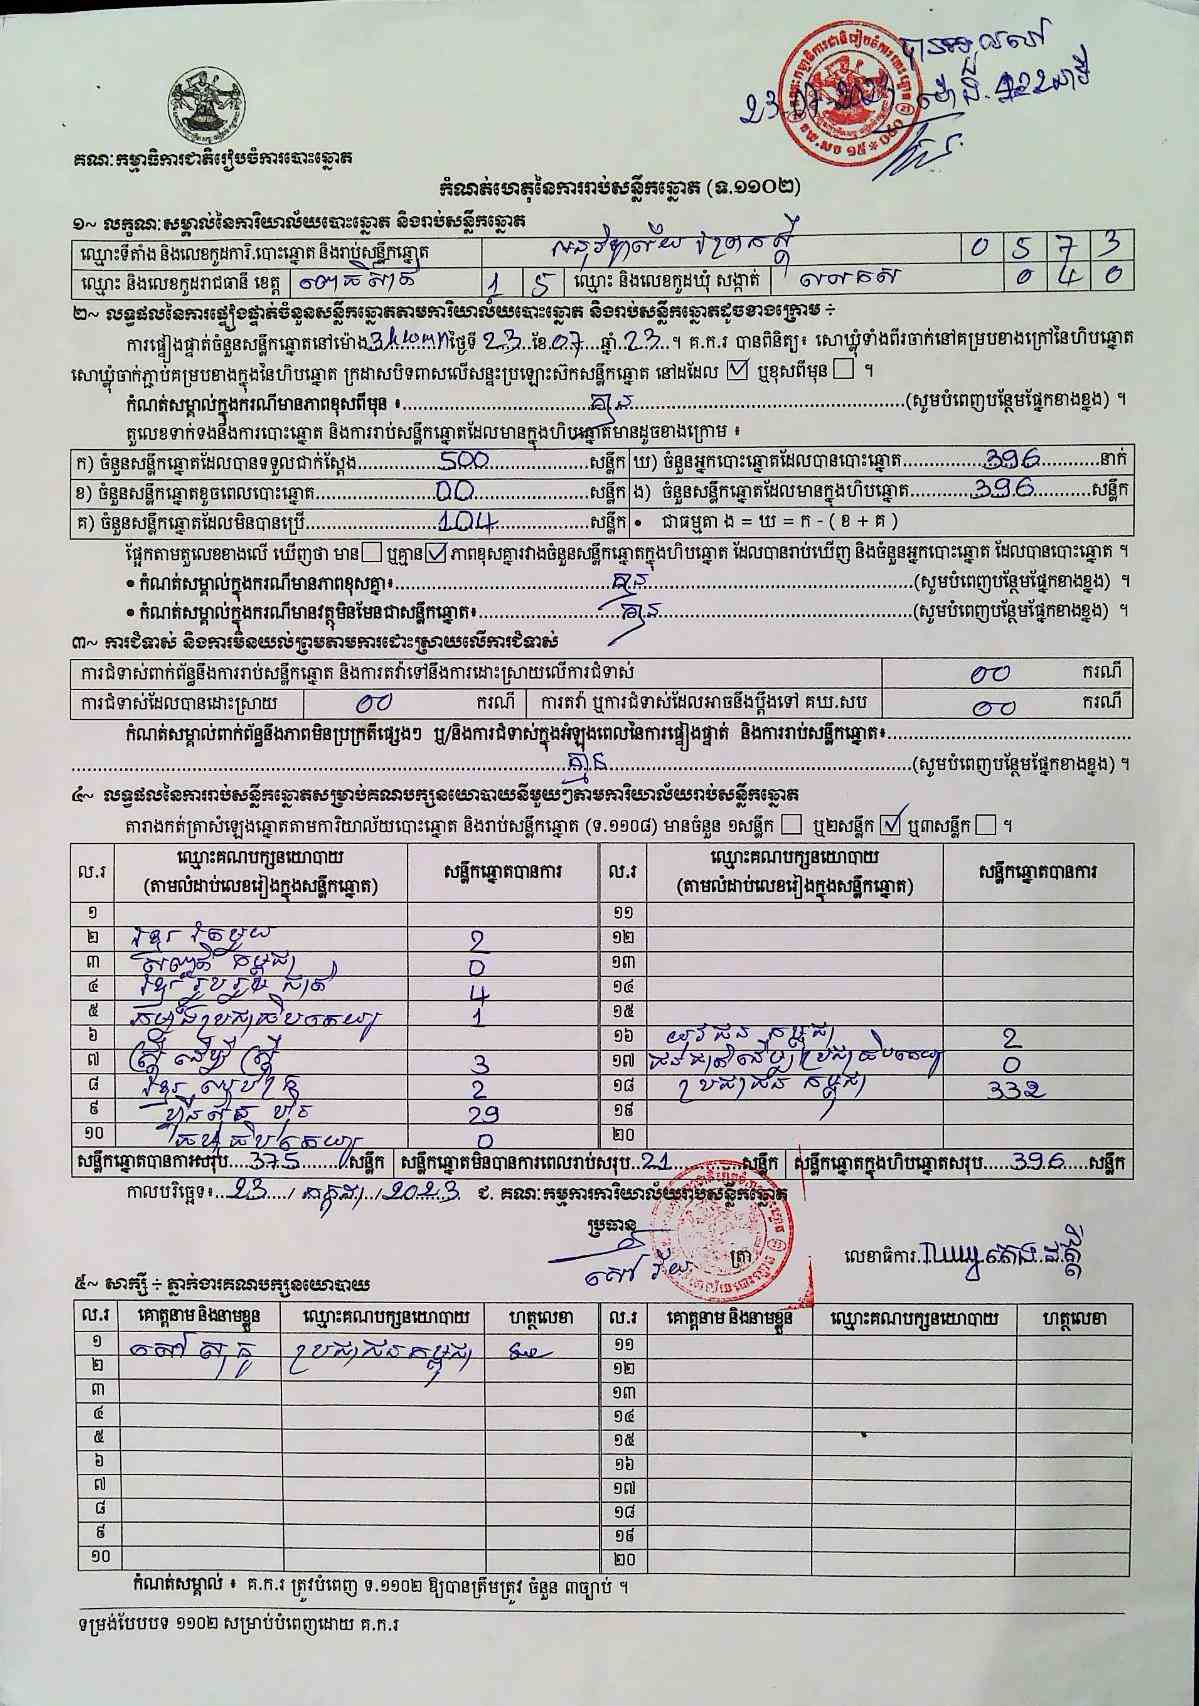 គណៈកម្មាធិការជាតិរៀបចំការបោះឆ្នោត
កំណត់ហេតុនៃការរាប់សន្លឹកឆ្នោត (ទ.១១០២)
១~ លក្ខណៈសម្គាល់នៃការិយាល័យបោះឆ្នោត និងរាប់សន្លឹកឆ្នោត
ឈ្មោះទីតាំង និងលេខកូដការិ.បោះឆ្នោត និងរាប់សន្លឹកឆ្នោត 0 5 7 3
ឈ្មោះ និងលេខកូដរាជធានី ខេត្ត ពោធិ៍សាត់ 1 5 ឈ្មោះ និងលេខកូដឃុំ សង្កាត់ 0 4 0
២~ លទ្ធផលនៃការផ្ទៀងផ្ទាត់ចំនួនសន្លឹកឆ្នោតតាមការិយាល័យបោះឆ្នោត និងរាប់សន្លឹកឆ្នោតដូចខាងក្រោម ÷
ការផ្ទៀងផ្ទាត់ចំនួនសន្លឹកឆ្នោតនៅម៉ោង ថ្ងៃទី 23 ខែ 07 ឆ្នាំ 23 ។ គ.ក.រ បានពិនិត្យ៖ សោឃ្លុំទាំងពីរចាក់នៅគម្របខាងក្រៅនៃហិបឆ្នោត
សោឃ្លុំចាក់ភ្ជាប់គម្របខាងក្នុងនៃហិបឆ្នោត ក្រដាសបិទពាសលើសន្ទះប្រឡោះស៊កសន្លឹកឆ្នោត នៅដដែល ☑ ឬខុសពីមុន ☐ ។
កំណត់សម្គាល់ក្នុងករណីមានភាពខុសពីមុន ៖ គ្មាន (សូមបំពេញបន្ថែមផ្នែកខាងខ្នង) ។
តួលេខទាក់ទងនឹងការបោះឆ្នោត និងការរាប់សន្លឹកឆ្នោតដែលមានក្នុងហិបឆ្នោតមានដូចខាងក្រោម ៖
ក) ចំនួនសន្លឹកឆ្នោតដែលបានទទួលជាក់ស្តែង 500 សន្លឹក ឃ) ចំនួនអ្នកបោះឆ្នោតដែលបានបោះឆ្នោត 396 នាក់
ខ) ចំនួនសន្លឹកឆ្នោតខូចពេលបោះឆ្នោត 00 សន្លឹក ង) ចំនួនសន្លឹកឆ្នោតដែលមានក្នុងហិបឆ្នោត 396 សន្លឹក
គ) ចំនួនសន្លឹកឆ្នោតដែលមិនបានប្រើ 104 សន្លឹក • ជាធម្មតា ង = ឃ = ក - ( ខ + គ )
ផ្អែកតាមតួលេខខាងលើ ឃើញថា មាន ☐ ឬគ្មាន ☑ ភាពខុសគ្នារវាងចំនួនសន្លឹកឆ្នោតក្នុងហិបឆ្នោត ដែលបានរាប់ឃើញ និងចំនួនអ្នកបោះឆ្នោត ដែលបានបោះឆ្នោត ។
• កំណត់សម្គាល់ក្នុងករណីមានភាពខុសគ្នា៖ គ្មាន (សូមបំពេញបន្ថែមផ្នែកខាងខ្នង) ។
• កំណត់សម្គាល់ក្នុងករណីមានវត្ថុមិនមែនជាសន្លឹកឆ្នោត៖ គ្មាន (សូមបំពេញបន្ថែមផ្នែកខាងខ្នង) ។
៣~ ការជំទាស់ និងការមិនយល់ព្រមតាមការដោះស្រាយលើការជំទាស់
ការជំទាស់ពាក់ព័ន្ធនឹងការរាប់សន្លឹកឆ្នោត និងការតវ៉ាទៅនឹងការដោះស្រាយលើការជំទាស់ 00 ករណី
ការជំទាស់ដែលបានដោះស្រាយ 00 ករណី ការតវ៉ា ឬការជំទាស់ដែលអាចនឹងប្តឹងទៅ គឃ.សប 00 ករណី
កំណត់សម្គាល់ពាក់ព័ន្ធនឹងភាពមិនប្រក្រតីផ្សេងៗ ឬ/និងការជំទាស់ក្នុងអំឡុងពេលនៃការផ្ទៀងផ្ទាត់ និងការរាប់សន្លឹកឆ្នោត៖
គ្មាន (សូមបំពេញបន្ថែមផ្នែកខាងខ្នង) ។
៤~ លទ្ធផលនៃការរាប់សន្លឹកឆ្នោតសម្រាប់គណបក្សនយោបាយនីមួយៗតាមការិយាល័យរាប់សន្លឹកឆ្នោត
តារាងកត់ត្រាសំឡេងឆ្នោតតាមការិយាល័យបោះឆ្នោត និងរាប់សន្លឹកឆ្នោត (ទ.១១០៨) មានចំនួន ១សន្លឹក ☐ ឬ២សន្លឹក ☑ ឬ៣សន្លឹក ☐ ។
ល.រ ឈ្មោះគណបក្សនយោបាយ (តាមលំដាប់លេខរៀងក្នុងសន្លឹកឆ្នោត) សន្លឹកឆ្នោតបានការ ល.រ ឈ្មោះគណបក្សនយោបាយ (តាមលំដាប់លេខរៀងក្នុងសន្លឹកឆ្នោត) សន្លឹកឆ្នោតបានការ
១ ១១
២ ខ្មែរ តែមួយ 2 ១២
៣ សញ្ជាតិ កម្ពុជា 0 ១៣
៤ ខ្មែរ រួបរួម ជាតិ 4 ១៤
៥ កម្លាំងប្រជាធិបតេយ្យ 1 ១៥
៦ ១៦ យុវជន កម្ពុជា 2
៧ ស្ត្រី ដើម្បី ស្ត្រី 3 ១៧ ជនជាតិដើមប្រជាធិបតេយ្យ 0
៨ ខ្មែរ 2 ១៨ ប្រជាជន កម្ពុជា 332
៩ ហ៊្វុនស៊ិន ប៉ិច 29 ១៩
១០ ធិបតេយ្យ 0 ២០
សន្លឹកឆ្នោតបានការសរុប 375 សន្លឹក សន្លឹកឆ្នោតមិនបានការពេលរាប់សរុប 21 សន្លឹក សន្លឹកឆ្នោតក្នុងហិបឆ្នោតសរុប 396 សន្លឹក
កាលបរិច្ឆេទ៖ 23 / កក្កដា / 2023 ជ. គណៈកម្មការការិយាល័យរាប់សន្លឹកឆ្នោត
ប្រធាន ត្រា លេខាធិការ
៥~ សាក្សី ÷ ភ្នាក់ងារគណបក្សនយោបាយ
ល.រ គោត្តនាម និងនាមខ្លួន ឈ្មោះគណបក្សនយោបាយ ហត្ថលេខា ល.រ គោត្តនាម និងនាមខ្លួន ឈ្មោះគណបក្សនយោបាយ ហត្ថលេខា
១ ប្រជាជនកម្ពុជា ១១
២ ១២
៣ ១៣
៤ ១៤
៥ ១៥
៦ ១៦
៧ ១៧
៨ ១៨
៩ ១៩
១០ ២០
កំណត់សម្គាល់ ៖ គ.ក.រ ត្រូវបំពេញ ទ.១១០២ ឱ្យបានត្រឹមត្រូវ ចំនួន ៣ច្បាប់ ។
ទម្រង់បែបបទ ១១០២ សម្រាប់បំពេញដោយ គ.ក.រ